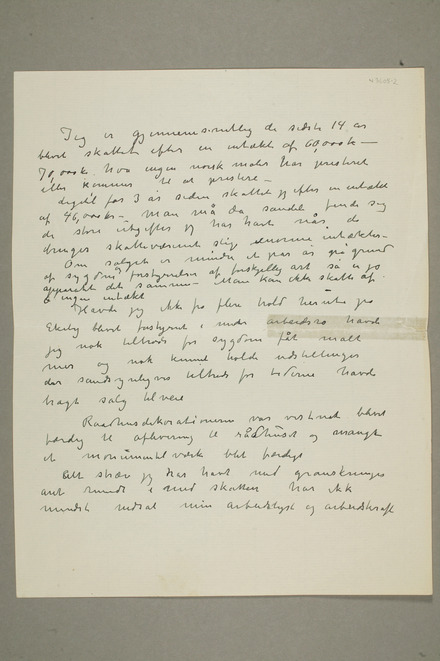 Jeg er gjennemsnitlig de sidste 14 år
blevet skattet efter en indtækt af 60,000 k –
70,000 k. hva ingen norsk maler har presteret
eller kommer til at prestere –
for 3 år siden skattet jeg efter en indtækt
af 46,000 kr – Man må da sandel finde sig
de store udgifter jeg har havt når de
skattevæsenet slig enorme indtækter –
Om salget er mindre et par år på grund
af sygdom forstyrrelser af forskjellig art så er jo
apparatet det samme – Man kan ikke skatte af
ingen indtækt
Havde jeg ikke fra flere hold her ude på
Ekely blevet forstyrret i min arbeidsro havde
jeg nok tiltrods for sygdom fåt malt
mer og nok kunnet holde udstillinger
der sandsynligvis tiltrods for tiderne havde
bragt salg tilveie
Raadhusdekorationerne var vistnok blevet
færdig til aflevering til rådhuset og mangt
et monumentalt værk blet færdigt
Alt stræv jeg har havt med granskninger
året rundt i med skatten har ikke
mindst nedsat min arbeidslyst og arbeidskraft